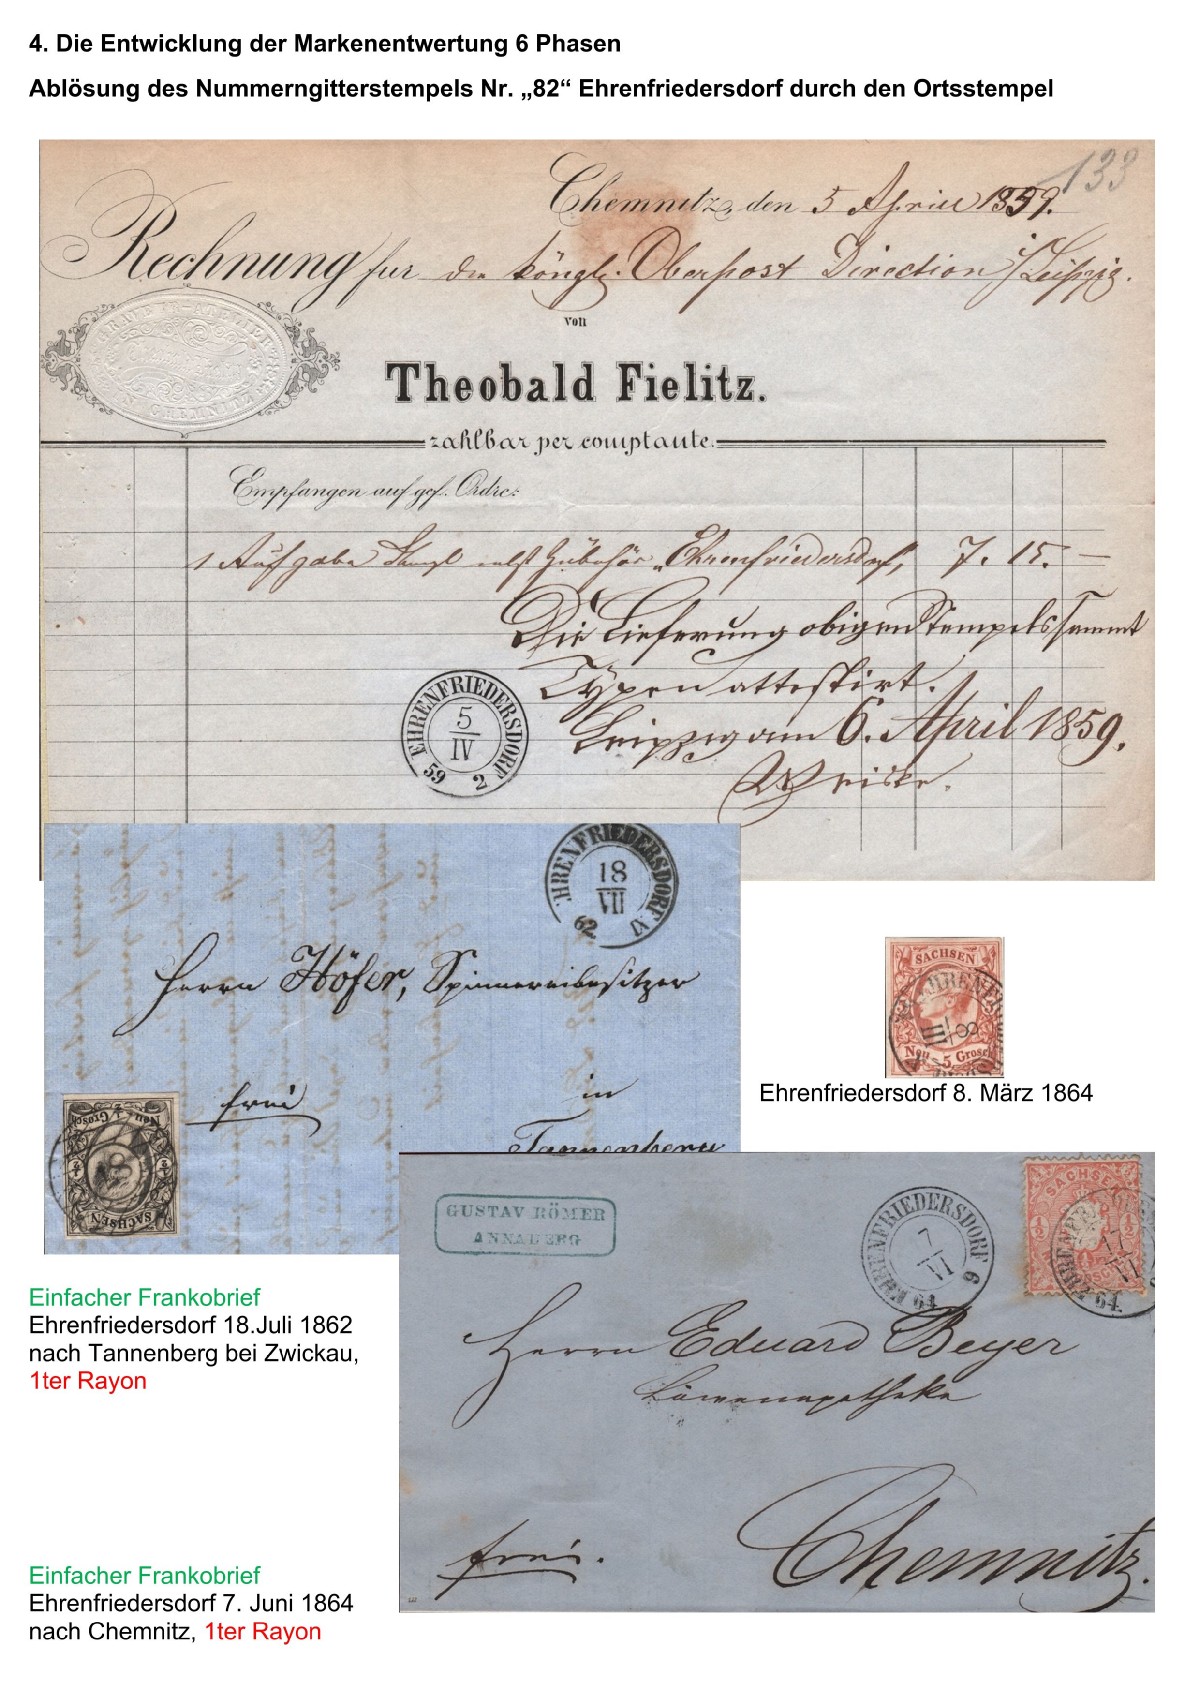 4. Die Entwicklung der Markenentwertung 6 Phasen
Ablösung des Nummerngitterstempels Nr. „82“ Ehrenfriedersdorf durch den Ortsstempel
133
Chemnitz, den 5 April 1859.
Rechnung für die königl. Oberpost Direction i/Leipzig.
von
Theobald Fielitz.
zahlbar per comptante.
Empfangen auf gef. Ordre:
1 Aufgabe Stempl nebst Zubehör „Ehrenfriedersdorf„ 7. 15. —
Die Lieferung obigen Stempels sammt
Typen attestirt.
Leipzig am 6. April 1859.
EHRENFRIEDERSDORF
5
IV
59 2
EHRENFRIEDERSDORF VI
18
VII
62
Herrn Höfer, Spinnereibesitzer
frei
in
Tannenberg
Neu Grosch
SACHSEN
SACHSEN
Neu 5 Grosch
EHRENFR
8
III
Ehrenfriedersdorf 8. März 1864
GUSTAV RÖMER
ANNABERG
EHRENFRIEDERSDORF 6
7
VI
64
SACHSEN
1/2
1/2
EHRENFR
VI
64
Herrn Eduard Beyer
Löwenapotheke
frei.
Chemnitz.
Einfacher Frankobrief
Ehrenfriedersdorf 18.Juli 1862
nach Tannenberg bei Zwickau,
1ter Rayon
Einfacher Frankobrief
Ehrenfriedersdorf 7. Juni 1864
nach Chemnitz, 1ter Rayon